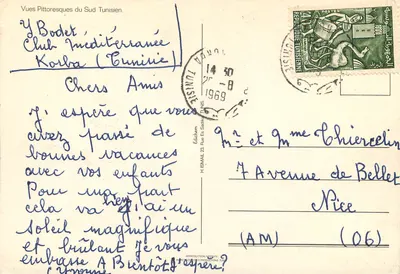 Vues Pittoresques du Sud Tunisien.
Y Bodet
Club Méditerranée
Korba (Tunisie)
Chers Amis
J'espère que vous
avez passé de
bonnes vacances
avec vos enfants
Pour ma part
cela va bien j'ai un
soleil magnifique
et brûlant Je vous
embrasse A Bientôt j'espère?
Yvonne
KORBA TUNISIE
14 30
-8
1969
Mr et Mme Thiercelin
7 Avenue de Bellet
Nice
(AM) (06)